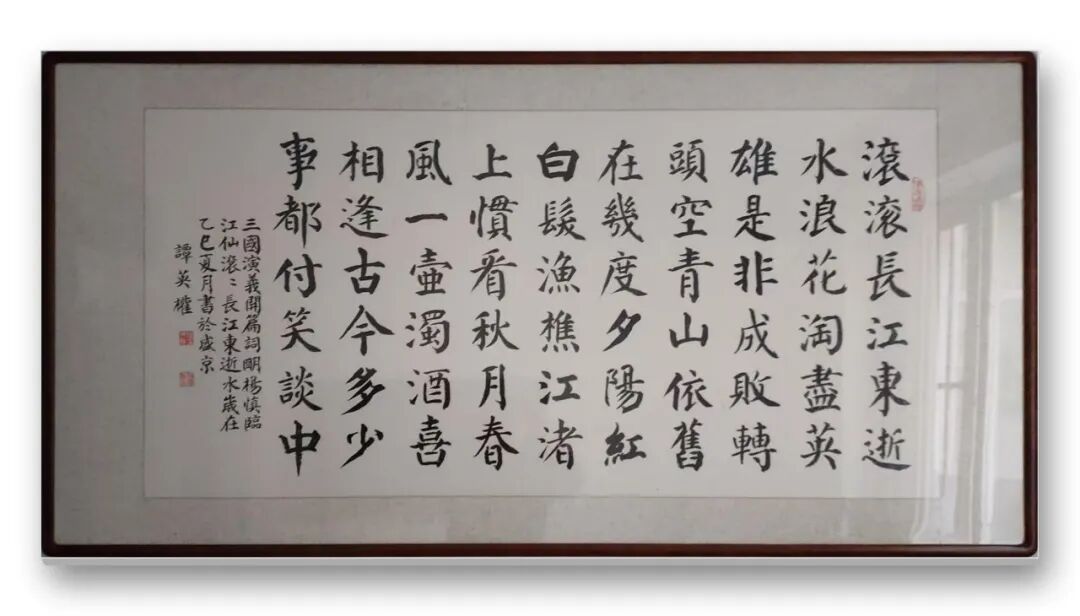 滾滚長江東逝
水浪花淘盡英
雄是非成敗轉
頭空青山依舊
在幾度夕陽紅
白髮漁樵江渚
上慣看秋月春
風一壺濁酒喜
相逢古今多少
事都付笑談中
三國演義開篇詞明楊慎臨
江仙滾〻長江東逝水歲在
乙巳夏月書於盛京
譚英權